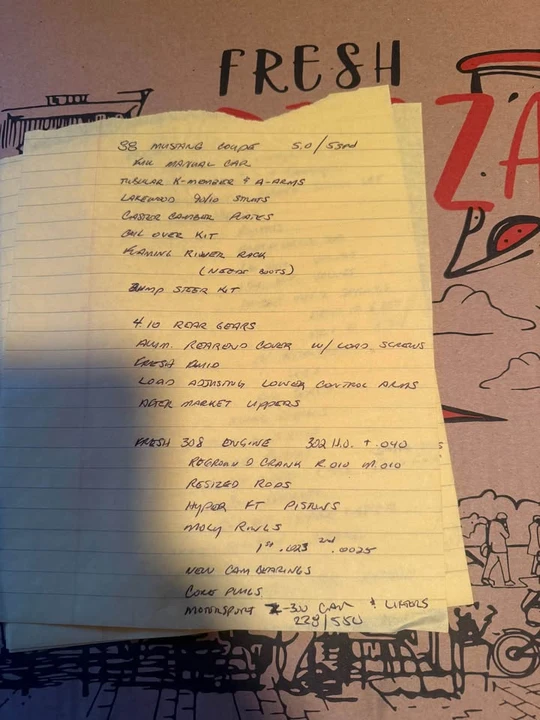 FRESH
ZA
88 MUSTANG COUPE 5.0/5spd
FULL MANUAL CAR
TUBULAR K-MEMBER & A-ARMS
LAKEWOOD 90/10 STRUTS
CASTER CAMBER PLATES
COIL OVER KIT
FLAMING RIVER RACK
(NEEDS BOOTS)
BUMP STEER KIT
4.10 REAR GEARS
ALUM. REAREND COVER W/ LOAD SCREWS
FRESH FLUID
LOAD ADJUSTING LOWER CONTROL ARMS
AFTER MARKET UPPERS
FRESH 308 ENGINE 302 H.O. + .040
REGROUND CRANK R.010 M.010
RESIZED RODS
HYPER FT PISTONS
MOLY RINGS
1st .023 2nd .0025
NEW CAM BEARINGS
CORE PLUGS
MOTORSPORT -300 CAM & LIFTERS
/550